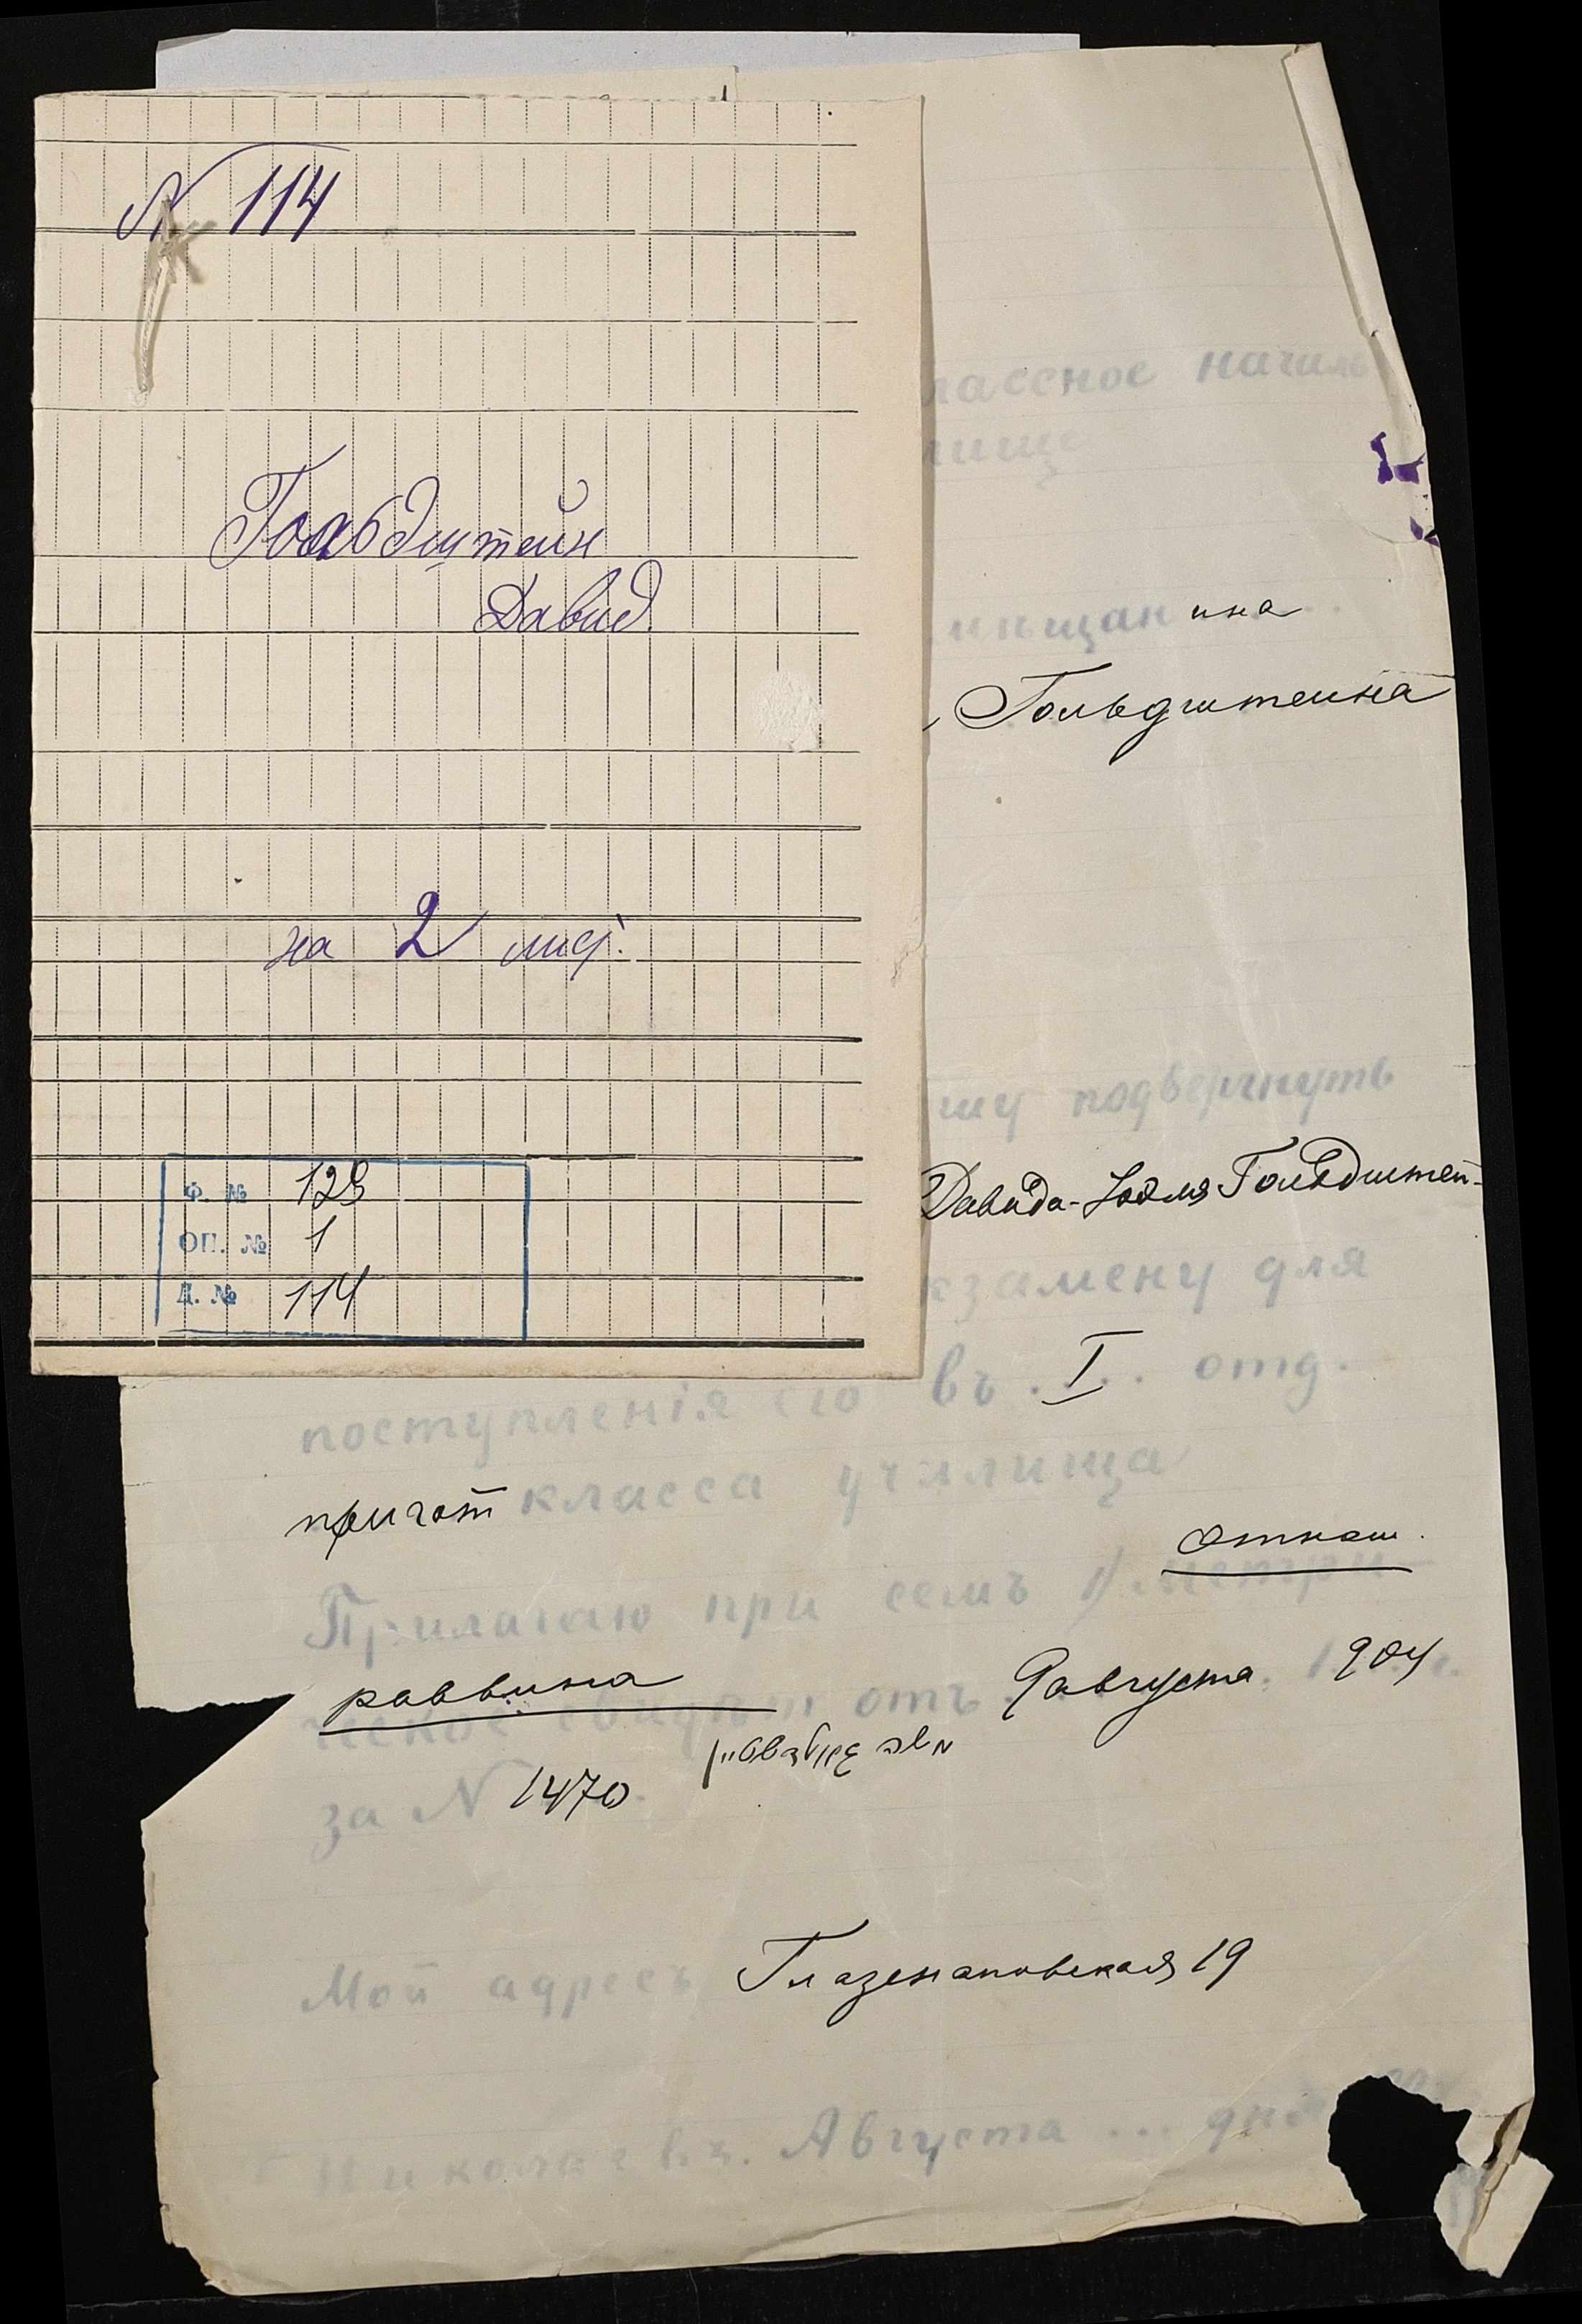 N 114
Гольдштейн
Давид.
на 2 лис.
Ф. № 129
ОП. № 1
Д. № 114
лассное началь
лище
мѣщанина
Гольдштейна
шу подвергнуть
Давида-Іоэля Гольдштей-
кзамену для
поступленія его въ I отд.
пригот класса училища
Прилагаю при семъ 1/ метри-
отнош.
раввина
ческое свидѣт отъ 9 августа 1904
за N 1470
Мой адресъ Глазенаповская 19
г Николаевъ. Августа ... дня